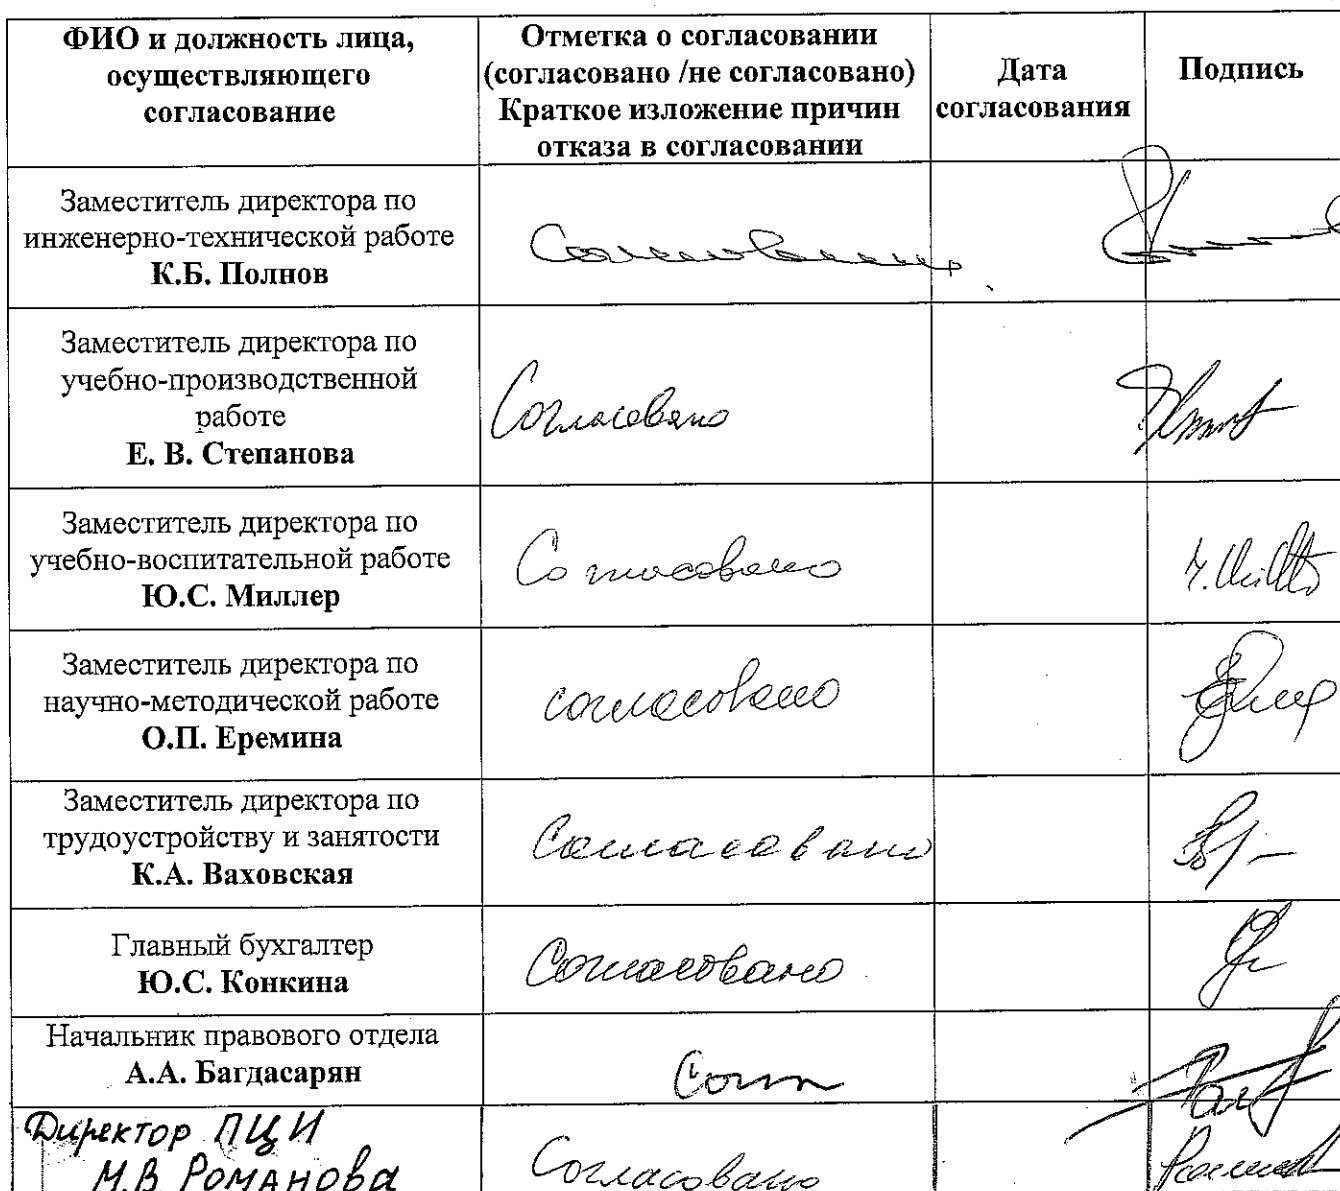 ФИО и должность лица,
осуществляющего
согласование
Отметка о согласовании
(согласовано /не согласовано)
Краткое изложение причин
отказа в согласовании
Дата
согласования
Подпись
Заместитель директора по
инженерно-технической работе
К.Б. Полнов
Согласовано
Заместитель директора по
учебно-производственной
работе
Е. В. Степанова
Согласовано
Заместитель директора по
учебно-воспитательной работе
Ю.С. Миллер
Согласовано
Заместитель директора по
научно-методической работе
О.П. Еремина
согласовано
Заместитель директора по
трудоустройству и занятости
К.А. Ваховская
Согласовано
Главный бухгалтер
Ю.С. Конкина
Согласовано
Начальник правового отдела
А.А. Багдасарян
Директор ПЦИ
М.В. Романова
Согласовано